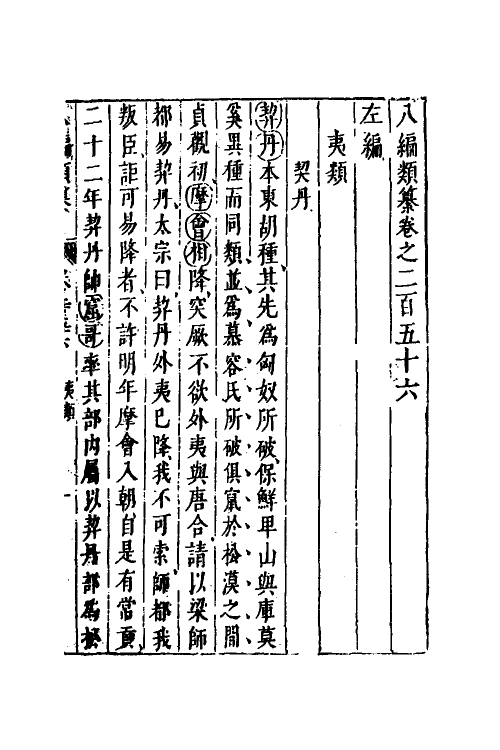 八編類纂卷之二百五十六
左編
夷類
契丹
契丹本東胡種其先為匈奴所破保鮮卑山與庫莫
奚異種而同類並為慕容氏所破俱竄於松漠之間
貞觀初摩會相降突厥不欲外夷與唐合請以梁師
都易契丹太宗曰契丹外夷已降我不可索師都我
叛臣詎可易降者不許明年摩會入朝自是有常貢
二十二年契丹師窟哥率其部內屬以契丹部為松
夷類